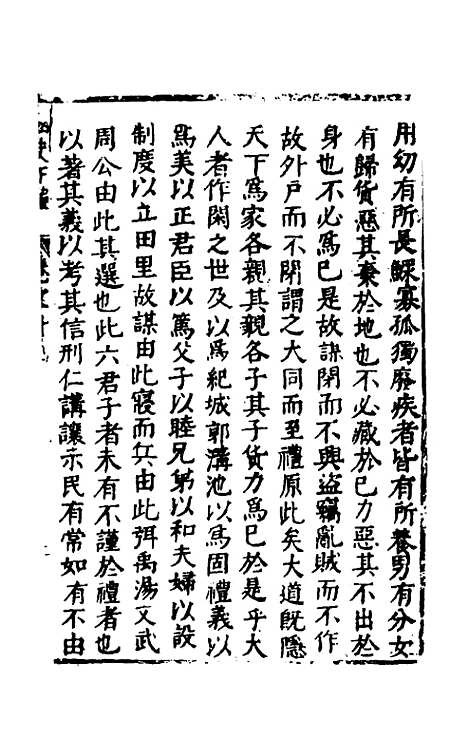 用幼有所長鰥寡孤獨廢疾者皆有所養男有分女
有歸貨惡其棄於地也不必藏於已力惡其不出於
身也不必為已是故謀閉而不興盜竊亂賊而不作
故外户而不閉謂之大同而至禮原此矣大道既隱
天下為家各親其親各子其子貨力為已於是乎大
人者作閑之世及以為紀城郭溝池以為固禮義以
為美以正君臣以篤父子以睦兄弟以和夫婦以設
制度以立田里故謀由此寢而兵由此弭禹湯文武
周公由此其選也此六君子者未有不謹於禮者也
以著其義以考其信刑仁講讓示民有常如有不由